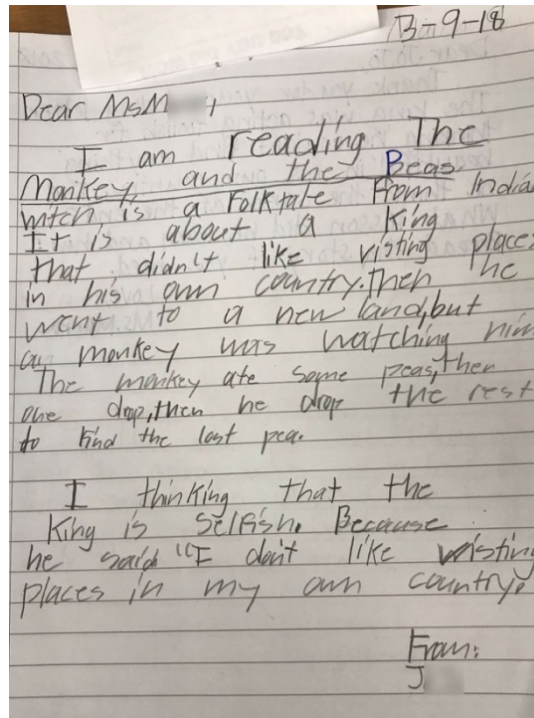 3-9-18
Dear MsM
I am reading The
Monkey, and the Beas
witch is a Folktale From India
It is about a King
that didn't like visting places
in his own country.Then he
went to a new land,but
a monkey was watching him
The monkey ate some peas,then
one drop,then he drop the rest
to find the last pea.
I thinking that the
King is selfish. Because
he said "I don't like visting
places in my own country."
From:
J